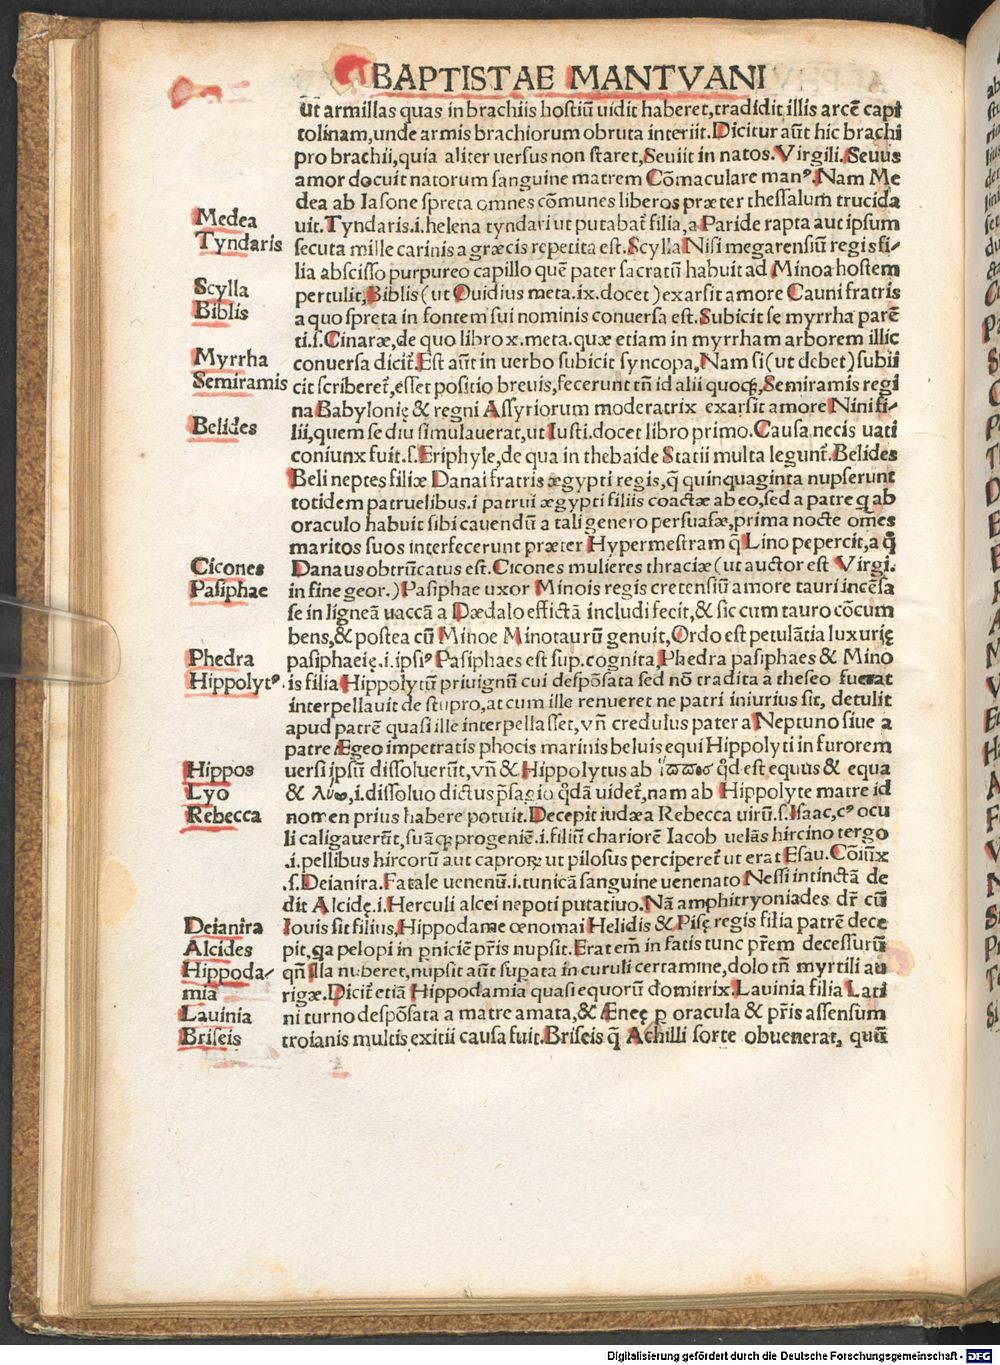 BAPTISTAE MANTVANI
ut armillas quas in brachiis hostiū uidit haberet, tradidit illis arcē capi
tolinam, unde armis brachiorum obruta interiit. Dicitur aūt hic brachi
pro brachii, quia aliter uersus non staret, Seuiit in natos. Virgili. Seuus
amor docuit natorum sanguine matrem Cōmaculare manꝰ. Nam Me
dea ab Iasone spreta omnes cōmunes liberos præter thessalum trucida
Medea
uit. Tyndaris .i. helena tyndari ut putabat᷑ filia, a Paride rapta aut ipsum
Tyndaris
secuta mille carinis a græcis repetita est. Scylla Nisi megarensiū regis fi-
lia abscisso purpureo capillo quē pater sacratū habuit ad Minoa hostem
Scylla
pertulit, Biblis (ut Ouidius meta.ix. docet) exarsit amore Cauni fratris
Biblis
a quo spreta in fontem sui nominis conuersa est. Subicit se myrrha parē
ti .s. Cinaræ, de quo libro x. meta. quæ etiam in myrrham arborem illic
Myrrha
conuersa dicit᷑. Est aūt in uerbo subicit syncopa, Nam si (ut debet) subii
Semiramis
cit scriberet᷑, esset positio breuis, fecerunt tn̄ id alii quoqꝫ, Semiramis regi
na Babylonię & regni Assyriorum moderatrix exarsit amore Nini fi-
Belides
lii, quem se diu simulauerat, ut Iusti. docet libro primo. Causa necis uati
coniunx fuit .s. Eriphyle, de qua in thebaide Statii multa legunt᷑. Belides
Beli neptes filiæ Danai fratris ægypti regis, q̄ quinquaginta nupserunt
totidem patruelibus .i. patrui ægypti filiis coactæ ab eo, sed a patre q ab
oraculo habuit sibi cauendū a tali genero persuasæ, prima nocte omēs
maritos suos interfecerunt præter Hypermestram q̄ Lino pepercit, a q̄
Cicones
Danaus obtrūcatus est. Cicones mulieres thraciæ (ut auctor est Virgi.
Pasiphae
in fine geor.) Pasiphae uxor Minois regis cretensiū amore tauri incēsa
se in ligneā uaccā a Dædalo effictā includi fecit, & sic cum tauro cōcum
bens, & postea cū Minoe Minotaurū genuit, Ordo est petulātia luxurię
Phedra
pasiphaeię .i. ipsiꝰ Pasiphaes est sup. cognita, Phedra pasiphaes & Mino
Hippolytꝰ.
is filia Hippolytū priuignū cui despōsata sed nō tradita a theseo fuerat
interpellauit de stupro, at cum ille renueret ne patri iniurius sit, detulit
apud patrē quasi ille interpellasset, vn̄ credulus pater a Neptuno siue a
patre Ægeo impetratis phocis marinis beluis equi Hippolyti in furorem
Hippos
uersi ipsū dissoluerūt, vn̄ & Hippolytus ab ἵϖϖοσ qd̄ est equus & equa
Lyo
& λύω, .i. dissoluo dictus p̄sagio qdā uidet᷑, nam ab Hippolyte matre id
Rebecca
nomen prius habere potuit. Decepit iudæa Rebecca uirū .s. Isaac, cꝰ ocu
li caligauerūt, suāqꝫ progeniē .i. filiū chariorē Iacob uelās hircino tergo
.i. pellibus hircorū aut caproꝝ ut pilosus perciperet᷑ ut erat Esau. Cōiūx
.s. Deianira. Fatale uenenū .i. tunicā sanguine uenenato Nessi intinctā de
dit Alcidę .i. Herculi alcei nepoti putatiuo. Nā amphitryoniades dr̄ cū
Deianira
Iouis sit filius, Hippodamæ œnomai Helidis & Pisę regis filia patrē dece
Alcides
pit, qa pelopi in pniciē pr̄is nupsit. Erat em̄ in fatis tunc pr̄em decessurū
Hippoda-
qn̄ illa nuberet, nupsit aūt supata in curuli certamine, dolo tn̄ myrtili au
mia
rigæ. Dicit᷑ etiā Hippodamia quasi equorū domitrix. Lauinia filia Lati
Lauinia
ni turno despōsata a matre amata, & Ænęę p oracula & pr̄is assensum
Briseis
troianis multis exitii causa fuit. Briseis q̄ Achilli sorte obuenerat, quū
Digitalisierung gefördert durch die Deutsche Forschungsgemeinschaft - DFG